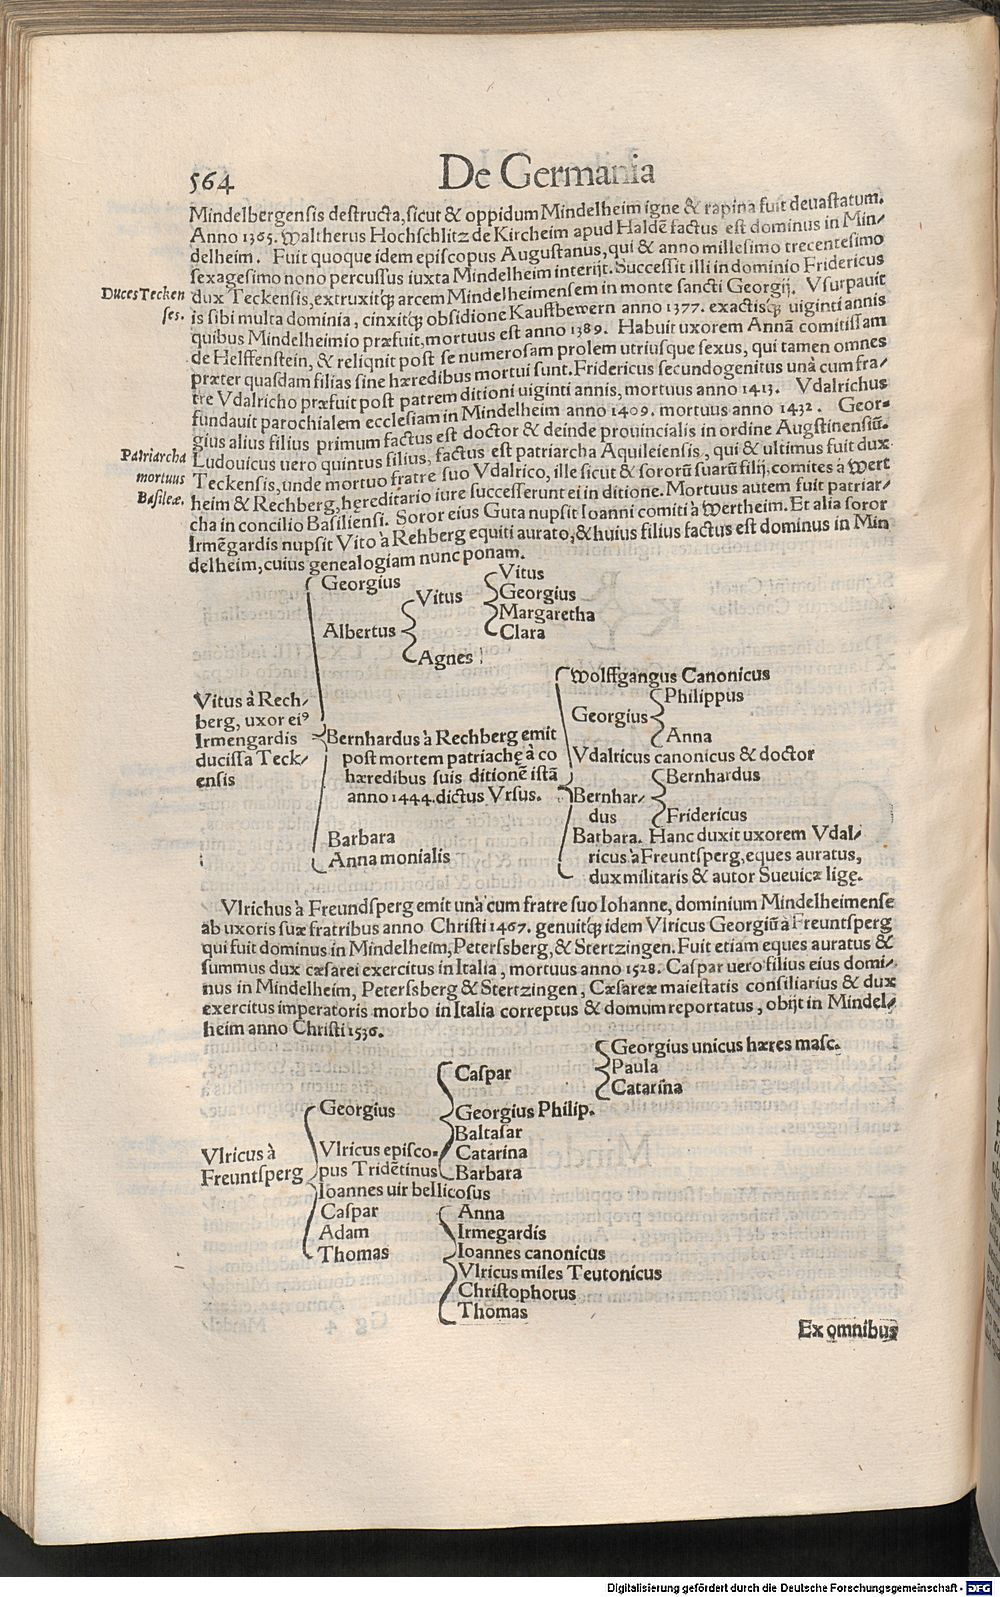 564
De Germania
Mindelbergensis destructa, sicut & oppidum Mindelheim igne & rapina fuit deuastatum.
Anno 1365. Waltherus Hochschlitz de Kircheim apud Haldẽ factus est dominus in Min/
delheim. Fuit quoque idem episcopus Augustanus, qui & anno millesimo trecentesimo
sexagesimo nono percussus iuxta Mindelheim interijt. Successit illi in dominio Fridericus
Duces Tecken
ses.
dux Teckensis, extruxitq́ue arcem Mindelheimensem in monte sancti Georgij. Vsurpauit
is sibi multa dominia, cinxitq́ue obsidione Kauffbewern anno 1377. exactisq́ue uiginti annis
quibus Mindelheimio præfuit, mortuus est anno 1389. Habuit uxorem Annã comitissam
de Helffenstein, & reliqnit post se numerosam prolem utriusque sexus, qui tamen omnes
præter quasdam filias sine hæredibus mortui sunt. Fridericus secundogenitus unà cum fra/
tre Vdalricho præfuit post patrem ditioni uiginti annis, mortuus anno 1413. Vdalrichus
fundauit parochialem ecclesiam in Mindelheim anno 1409. mortuus anno 1432. Geor-
gius alius filius primum factus est doctor & deinde prouincialis in ordine Augstinensiũ.
Patriarcha
mortuus
Basileæ.
Ludouicus uero quintus filius, factus est patriarcha Aquileiensis, qui & ultimus fuit dux
Teckensis, unde mortuo fratre suo Vdalrico, ille sicut & sororũ suarũ filij, comites à Wert
heim & Rechberg, hereditario iure successerunt ei in ditione. Mortuus autem fuit patriar/
cha in concilio Basiliensi. Soror eius Guta nupsit Ioanni comiti à Wertheim. Et alia soror
Irmẽgardis nupsit Vito à Rehberg equiti aurato, & huius filius factus est dominus in Min
delheim, cuius genealogiam nunc ponam.
Vitus à Rech/
berg, uxor eiꝰ
Irmengardis
ducissa Teck/
ensis
Georgius
Albertus
Vitus
Vitus
Georgius
Margaretha
Clara
Agnes
Bernhardus à Rechberg emit
post mortem patriachę à co
hæredibus suis ditionẽ istã
anno 1444. dictus Vrsus.
Wolffgangus Canonicus
Georgius
Philippus
Anna
Vdalricus canonicus & doctor
Bernhar/
dus
Bernhardus
Fridericus
Barbara. Hanc duxit uxorem Vdal/
ricus à Freuntsperg, eques auratus,
dux militaris & autor Sueuicæ ligę.
Barbara
Anna monialis
Vlrichus à Freundsperg emit unà cum fratre suo Iohanne, dominium Mindelheimense
ab uxoris suæ fratribus anno Christi 1467. genuitq́ue idem Vlricus Georgiũ à Freuntsperg
qui fuit dominus in Mindelheim, Peterssberg, & Stertzingen. Fuit etiam eques auratus &
summus dux cæsarei exercitus in Italia, mortuus anno 1528. Caspar uero filius eius domi/
nus in Mindelheim, Peterssberg & Stertzingen, Cæsareæ maiestatis consiliarius & dux
exercitus imperatoris morbo in Italia correptus & domum reportatus, obijt in Mindel/
heim anno Christi 1536.
Vlricus à
Freuntsperg
Georgius
Caspar
Georgius unicus hæres masc.
Paula
Catarina
Georgius Philip.
Baltasar
Catarina
Barbara
Vlricus episco-
pus Tridẽtinus
Ioannes uir bellicosus
Caspar
Adam
Thomas
Anna
Irmegardis
Ioannes canonicus
Vlricus miles Teutonicus
Christophorus
Thomas
Ex omnibus
Digitalisierung gefördert durch die Deutsche Forschungsgemeinschaft - DFG